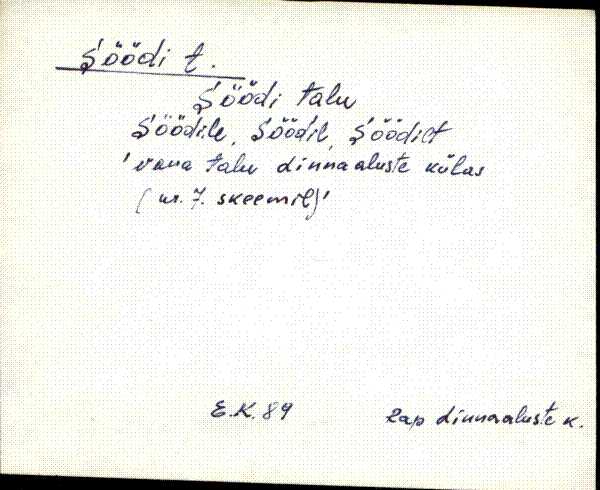 Śöödi t.
Śöödi talu
Śöödile, Śöödil, Śöödilt
'vana talu Linnaaluste külas
(nr. 7. skeemil)'
E.K. 89 Rap Linnaaluste k.